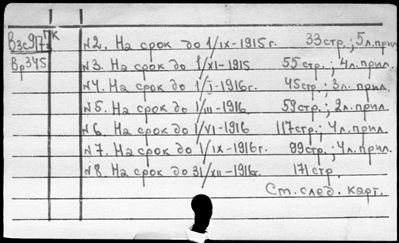 Вз с9/77к №2. На срок до 1/IX-1915г. 33стр.; 5л.прил.
Вр345 №3. На срок до 1/XI-1915 55стр.; 4л.прил.
№4. На срок до 1/I-1916г. 45стр.; 3л.прил.
№5. На срок до 1/III-1916 59стр.; 2л.прил.
№6. На срок до 1/VI-1916 117стр.; 4л.прил.
№7. На срок до 1/IX-1916г. 99стр.; 4л.прил.
№8. На срок до 31/XII-1916г. 171стр.
См. след. карт.